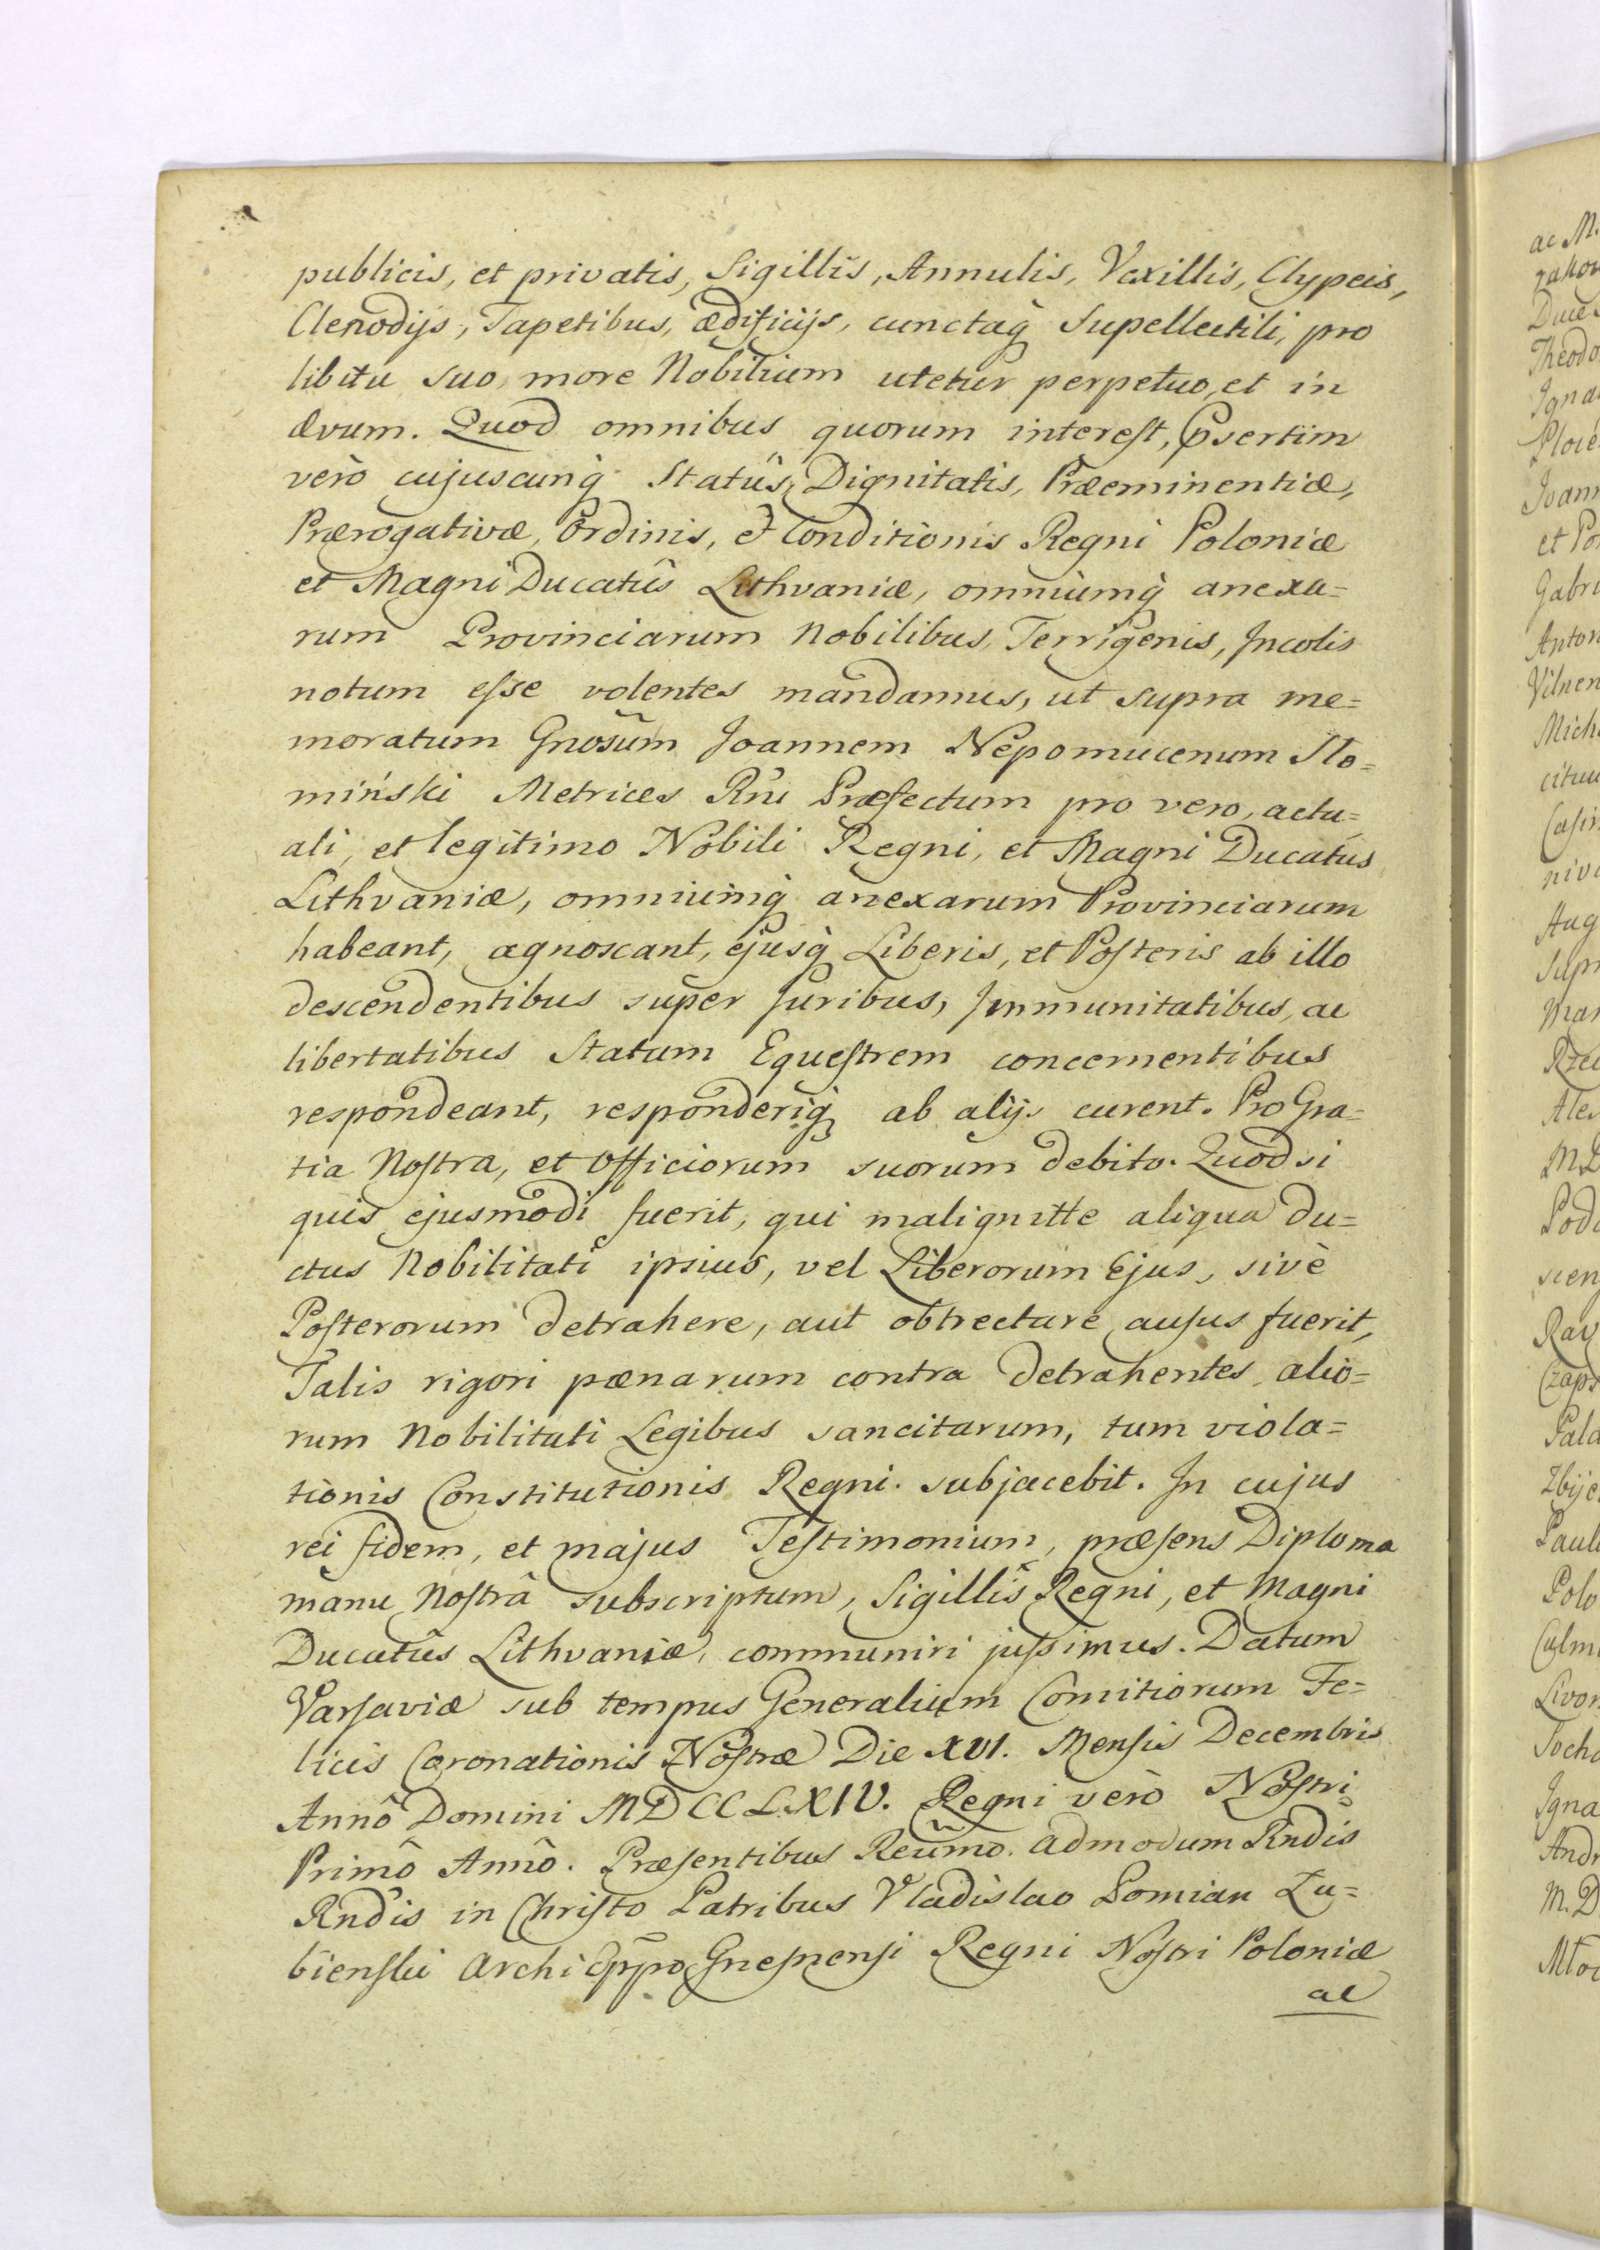 publicis, et privatis, Sigillis, Annulis, Vexillis, Clypeis,
Clenodijs, Tapetibus, ædificijs, cunctaq̀ Supellectili, pro
libitu suo, more Nobilium utetur perpetuo, et in
ævum. Quod omnibus quorum interest, p̄sertim
verò cujuscunq̀ Statûs, Dignitatis, Præeminentiæ,
Prærogativæ, Ordinis, & Conditionis Regni Poloniæ
et Magni Ducatûs Lithvaniæ, omniumq̀ anexa=
rum Provinciarum Nobilibus, Terrigenis, Incolis
notum esse volentes mandamus, ut supra me=
moratum Gnosum̄ Joannem Nepomucenum Sło=
miński Metrices Rni Præfectum pro vero, actu=
ali, et legitimo Nobili Regni, et Magni Ducatûs
Lithvaniæ, omniumq̀ anexarum Provinciarum
habeant, agnoscant, ejusq̀ Liberis, et Posteris ab illo
descendentibus super Juribus, Immunitatibus, ac
libertatibus Statum Equestrem concernentibus
respondeant, responderiq̀ ab alijs curent. Pro Gra=
tia Nostra, et Officiorum suorum debito. Quod si
quis ejusmodi fuerit, qui malignitte aliqua du=
ctus Nobilitati ipsius, vel Liberorum Ejus, sivè
Posterorum detrahere, aut obtrectare ausus fuerit,
Talis rigori pænarum contra detrahentes, alio=
rum Nobilitati Legibus sancitarum, tum viola=
tionis Constitutionis Regni subjacebit. In cujus
rei fidem, et majus Testimonium, præsens Diploma
manu Nostrâ subscriptum, Sigillis Regni, et Magni
Ducatûs Lithvaniæ, communiri jussimus. Datum
Varsaviæ sub tempus Generalium Comitiorum Fe=
licis Coronationis Nostræ Die XVI. Mensis Decembris
Annô Domini MDCCLXIV. Regni verò Nostri
Primô Annô. Præsentibus Reūmo. admodum Rndis
Rndis in Christo Patribus Vladislao Pomian Łu=
bienski Archi Eppo Gnesnensi Regni Nostri Poloniæ
ac
ac M.
Duce
Theodo
Igna
Joann
et Po
Gabri
Anton
Vilnen
Mich
Casim
nivi
Aug
Supr
Mar
Rze
Ale
M.D
Podo
Czaps
Pala
Zbije
Paul
Polo
Culm
Livon
Socha
Igna
Andr
M.D